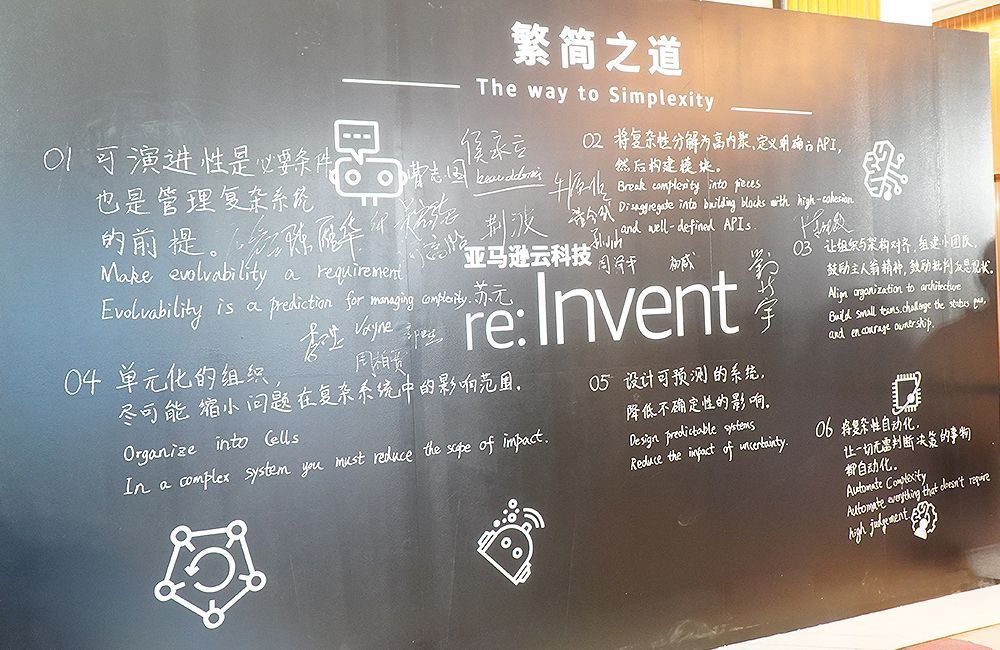 繁简之道
The way to Simplexity
01 可演进性是必要条件
也是管理复杂系统
的前提。
Make evolvability a requirement
Evolvability is a prediction for managing complexity.
02 将复杂性分解为高内聚、定义明确的API,
然后构建模块。
Break complexity into pieces
Disaggregate into building blocks with high-cohesion
and well-defined APIs.
侯永立
荆波
周学平
苏元
Wayne
周柏贲
亚马逊云科技
re:Invent
03 让组织与架构对齐,组建小团队,
鼓励主人翁精神,鼓动批判反思现状。
Align organization to architecture
Build small teams, challenge the status quo,
and encourage ownership.
04 单元化的组织,
尽可能缩小问题在复杂系统中的影响范围。
Organize into Cells
In a complex system you must reduce the scope of impact.
05 设计可预测的系统,
降低不确定性的影响。
Design predictable systems
Reduce the impact of uncertainty.
06 将复杂性自动化,
让一切无需判断决策的事物
都自动化。
Automate Complexity
Automate everything that doesn't require
high judgement